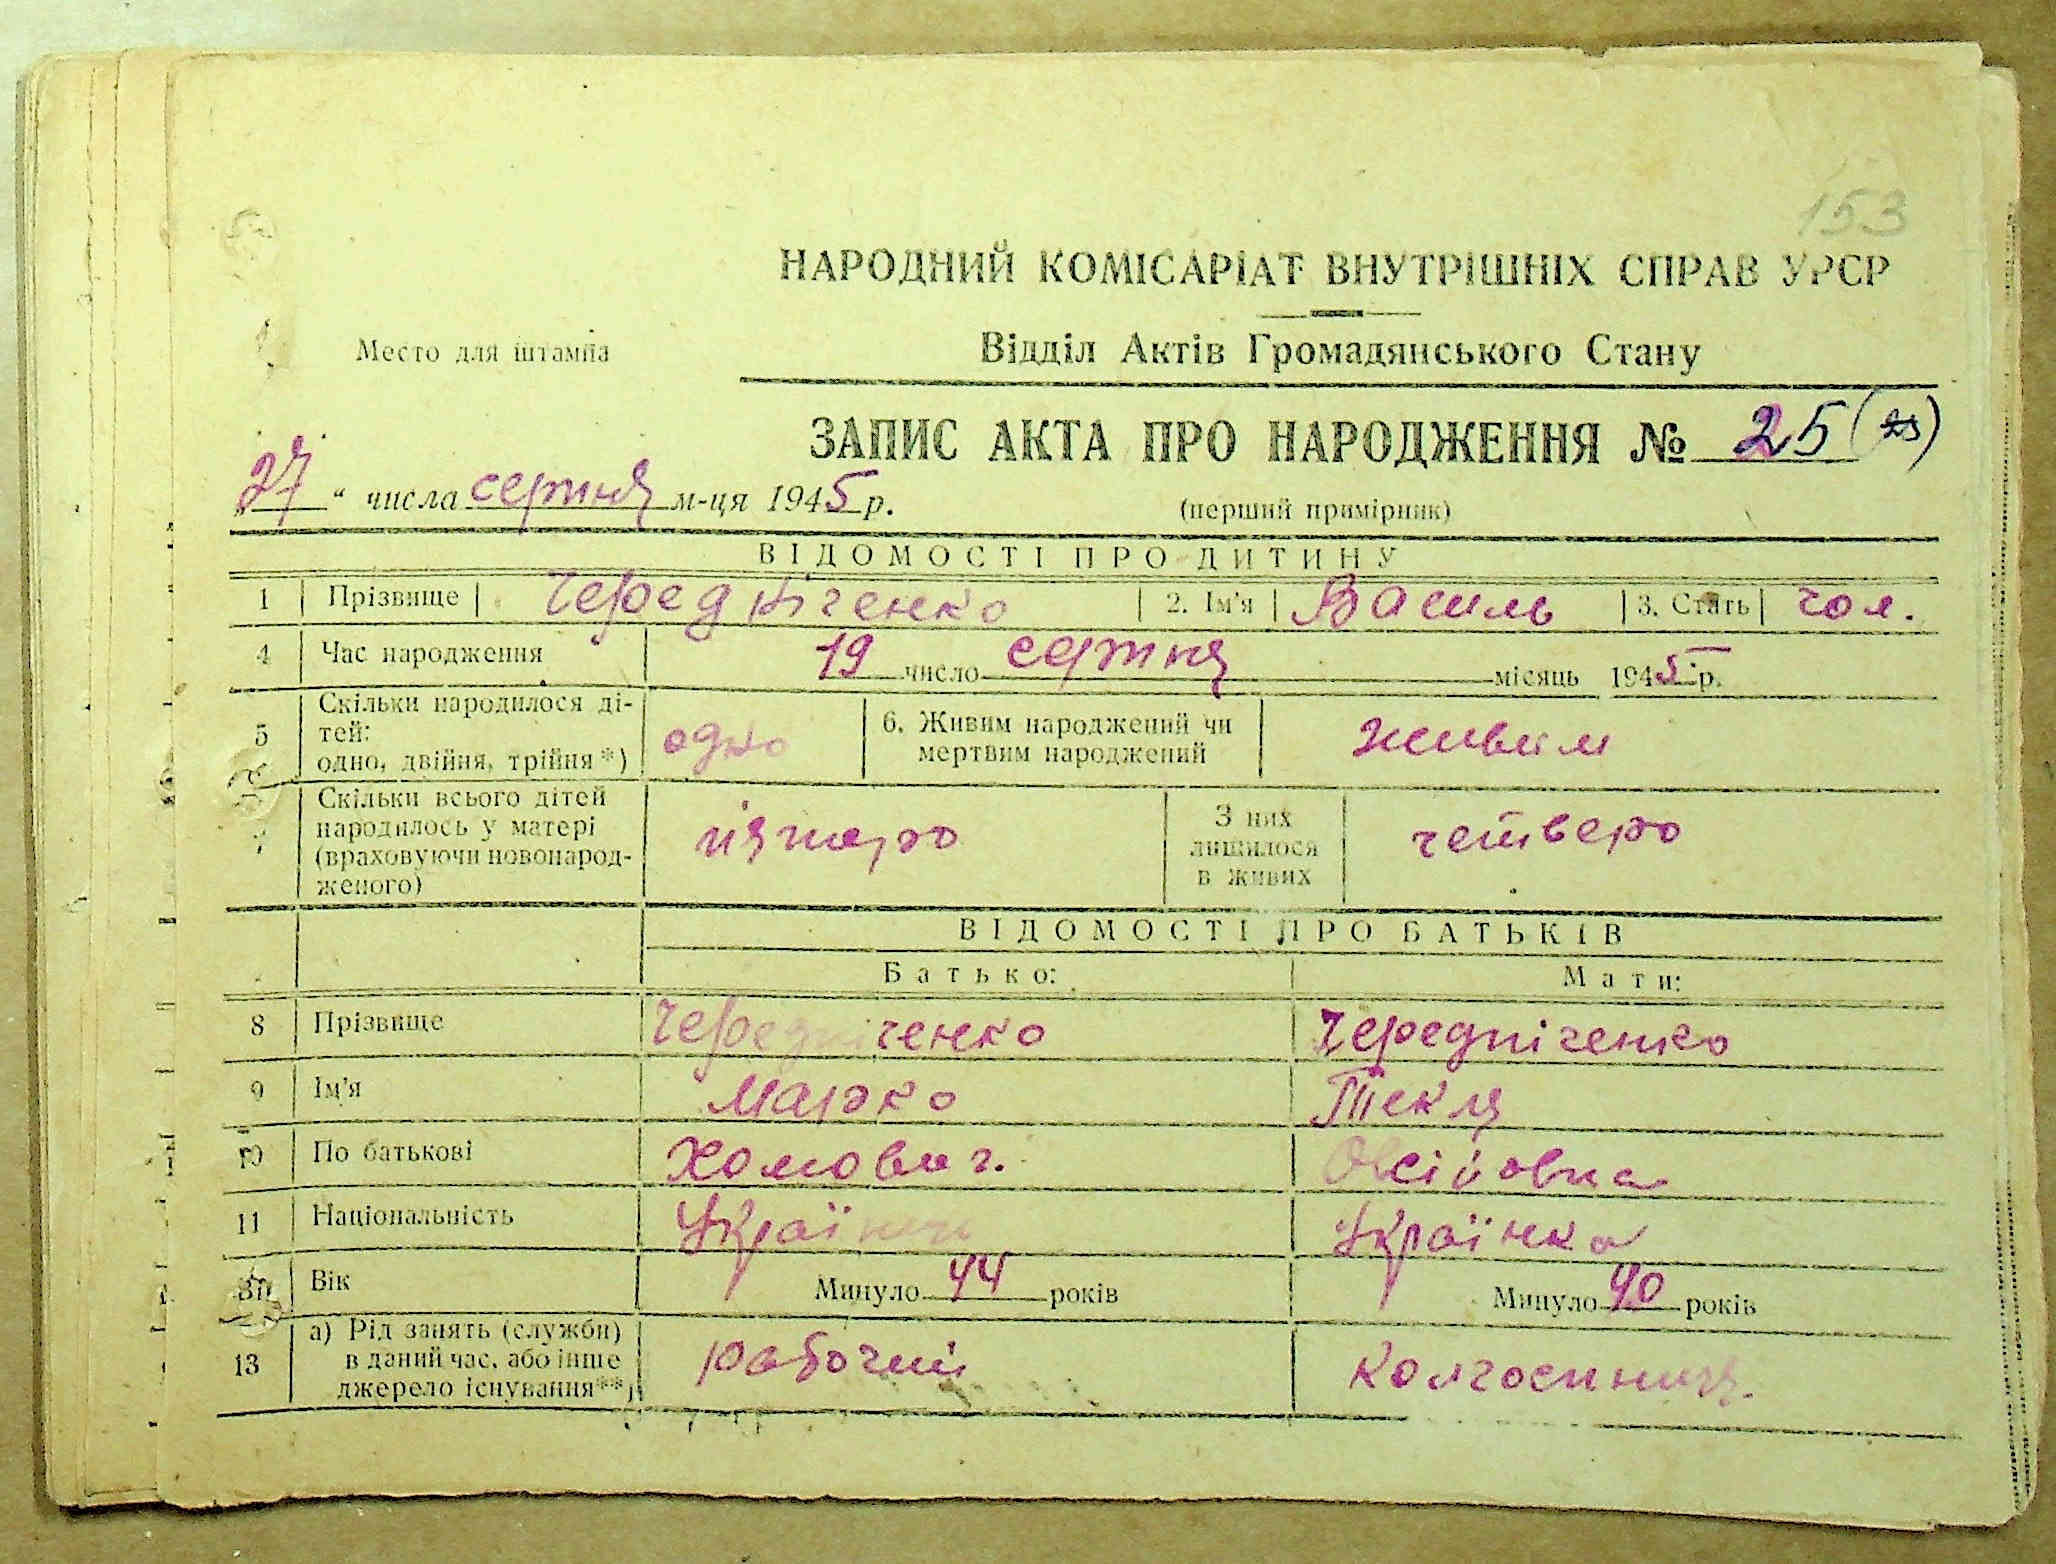 153
НАРОДНИЙ КОМІСАРІАТ ВНУТРІШНІХ СПРАВ УРСР
Место для штампа
Відділ Актів Громадянського Стану
ЗАПИС АКТА ПРО НАРОДЖЕННЯ № 25
„27“ числа серпня м-ця 1945 р.
(перший примірник)
ВІДОМОСТІ ПРО ДИТИНУ
1 Прізвище Чередніченко 2. Ім'я Василь 3. Стать чол.
4 Час народження 19 число серпня місяць 1945 р.
5 Скільки народилося ді-
тей:
одно, двійня, трійня*) одно
6. Живим народжений чи
мертвим народжений живим
7 Скільки всього дітей
народилось у матері
(враховуючи новонарод-
женого) пятеро
З них
лишилося
в живих четверо
ВІДОМОСТІ ПРО БАТЬКІВ
Батько: Мати:
8 Прізвище Чередніченко Чередніченко
9 Ім'я Марко Текля
10 По батькові Хомович. Овсіовна
11 Національність Українець Українка
Вік Минуло 44 років Минуло 40 років
13 а) Рід занять (служби)
в даний час, або інше
джерело існування**) рабочий Колгоспниця.